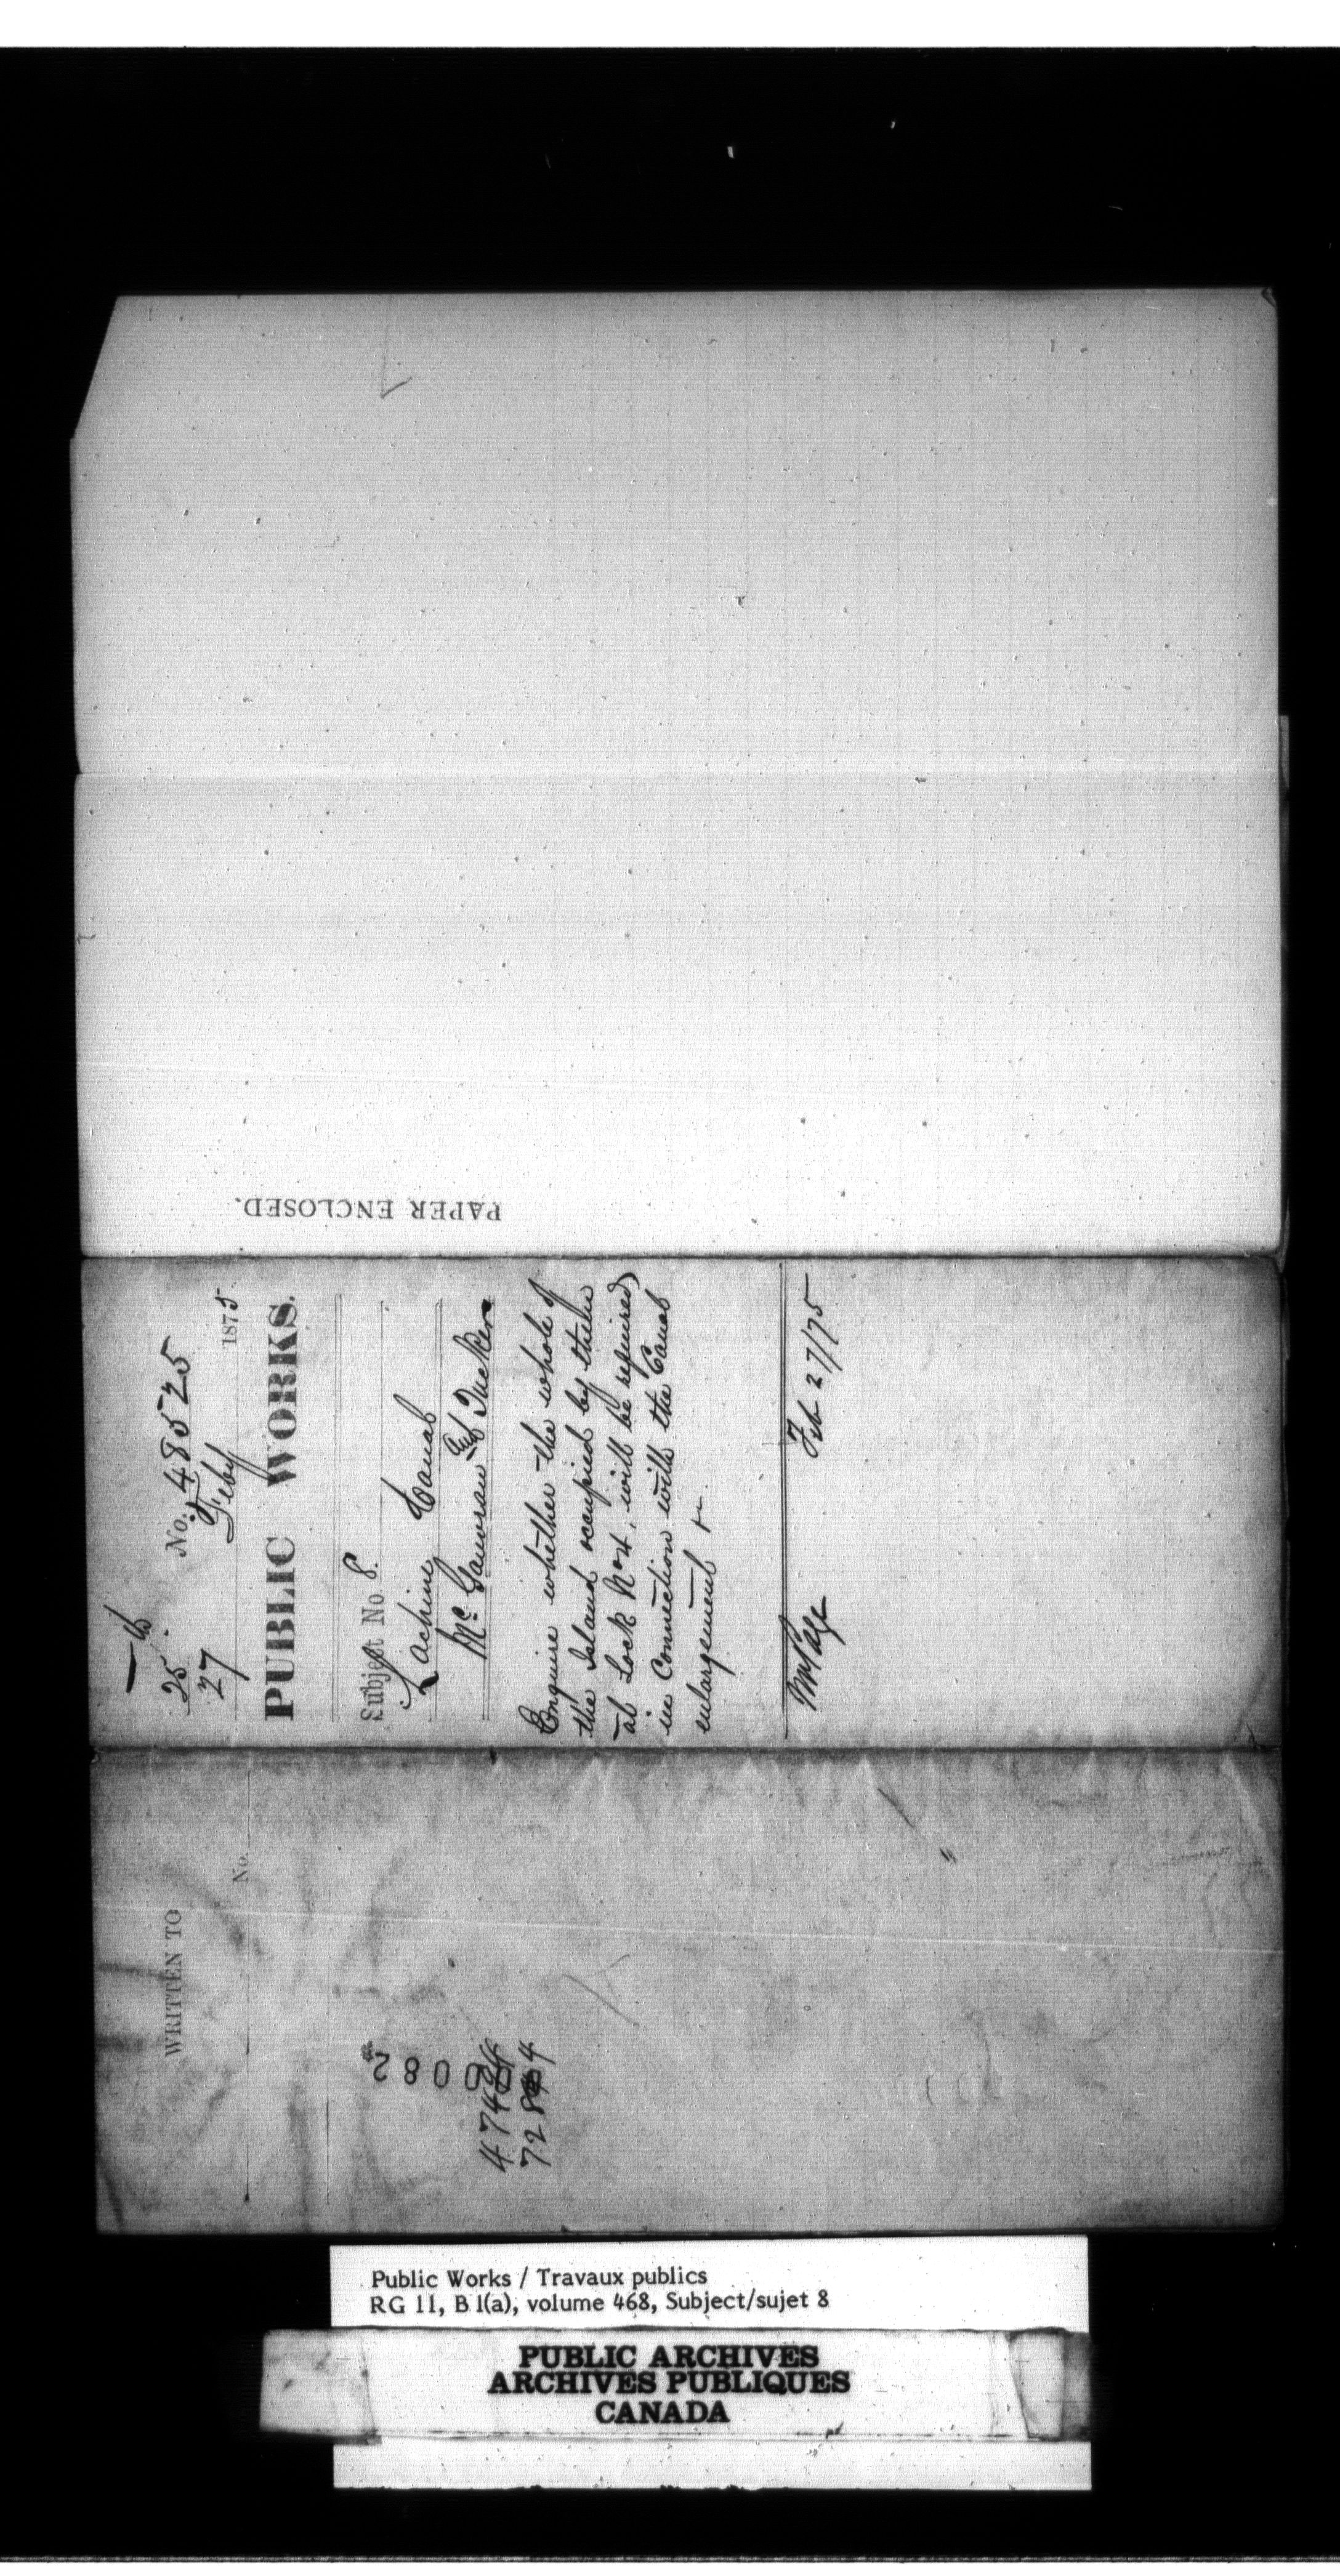 PAPER ENCLOSED.
25
27
No. 48525
Feby 1875
PUBLIC WORKS.
Subject No. 8.
Lachine Canal
McGauvran and Tucker
Enquire whether the whole of
the Island occupied by them
at Lock No 4, will be required
in Connection with the Canal
enlargement
Mr Page Feb 27/75
WRITTEN TO
No.
Public Works / Travaux publics
RG 11, B 1(a), volume 468, Subject/sujet 8
PUBLIC ARCHIVES
ARCHIVES PUBLIQUES
CANADA